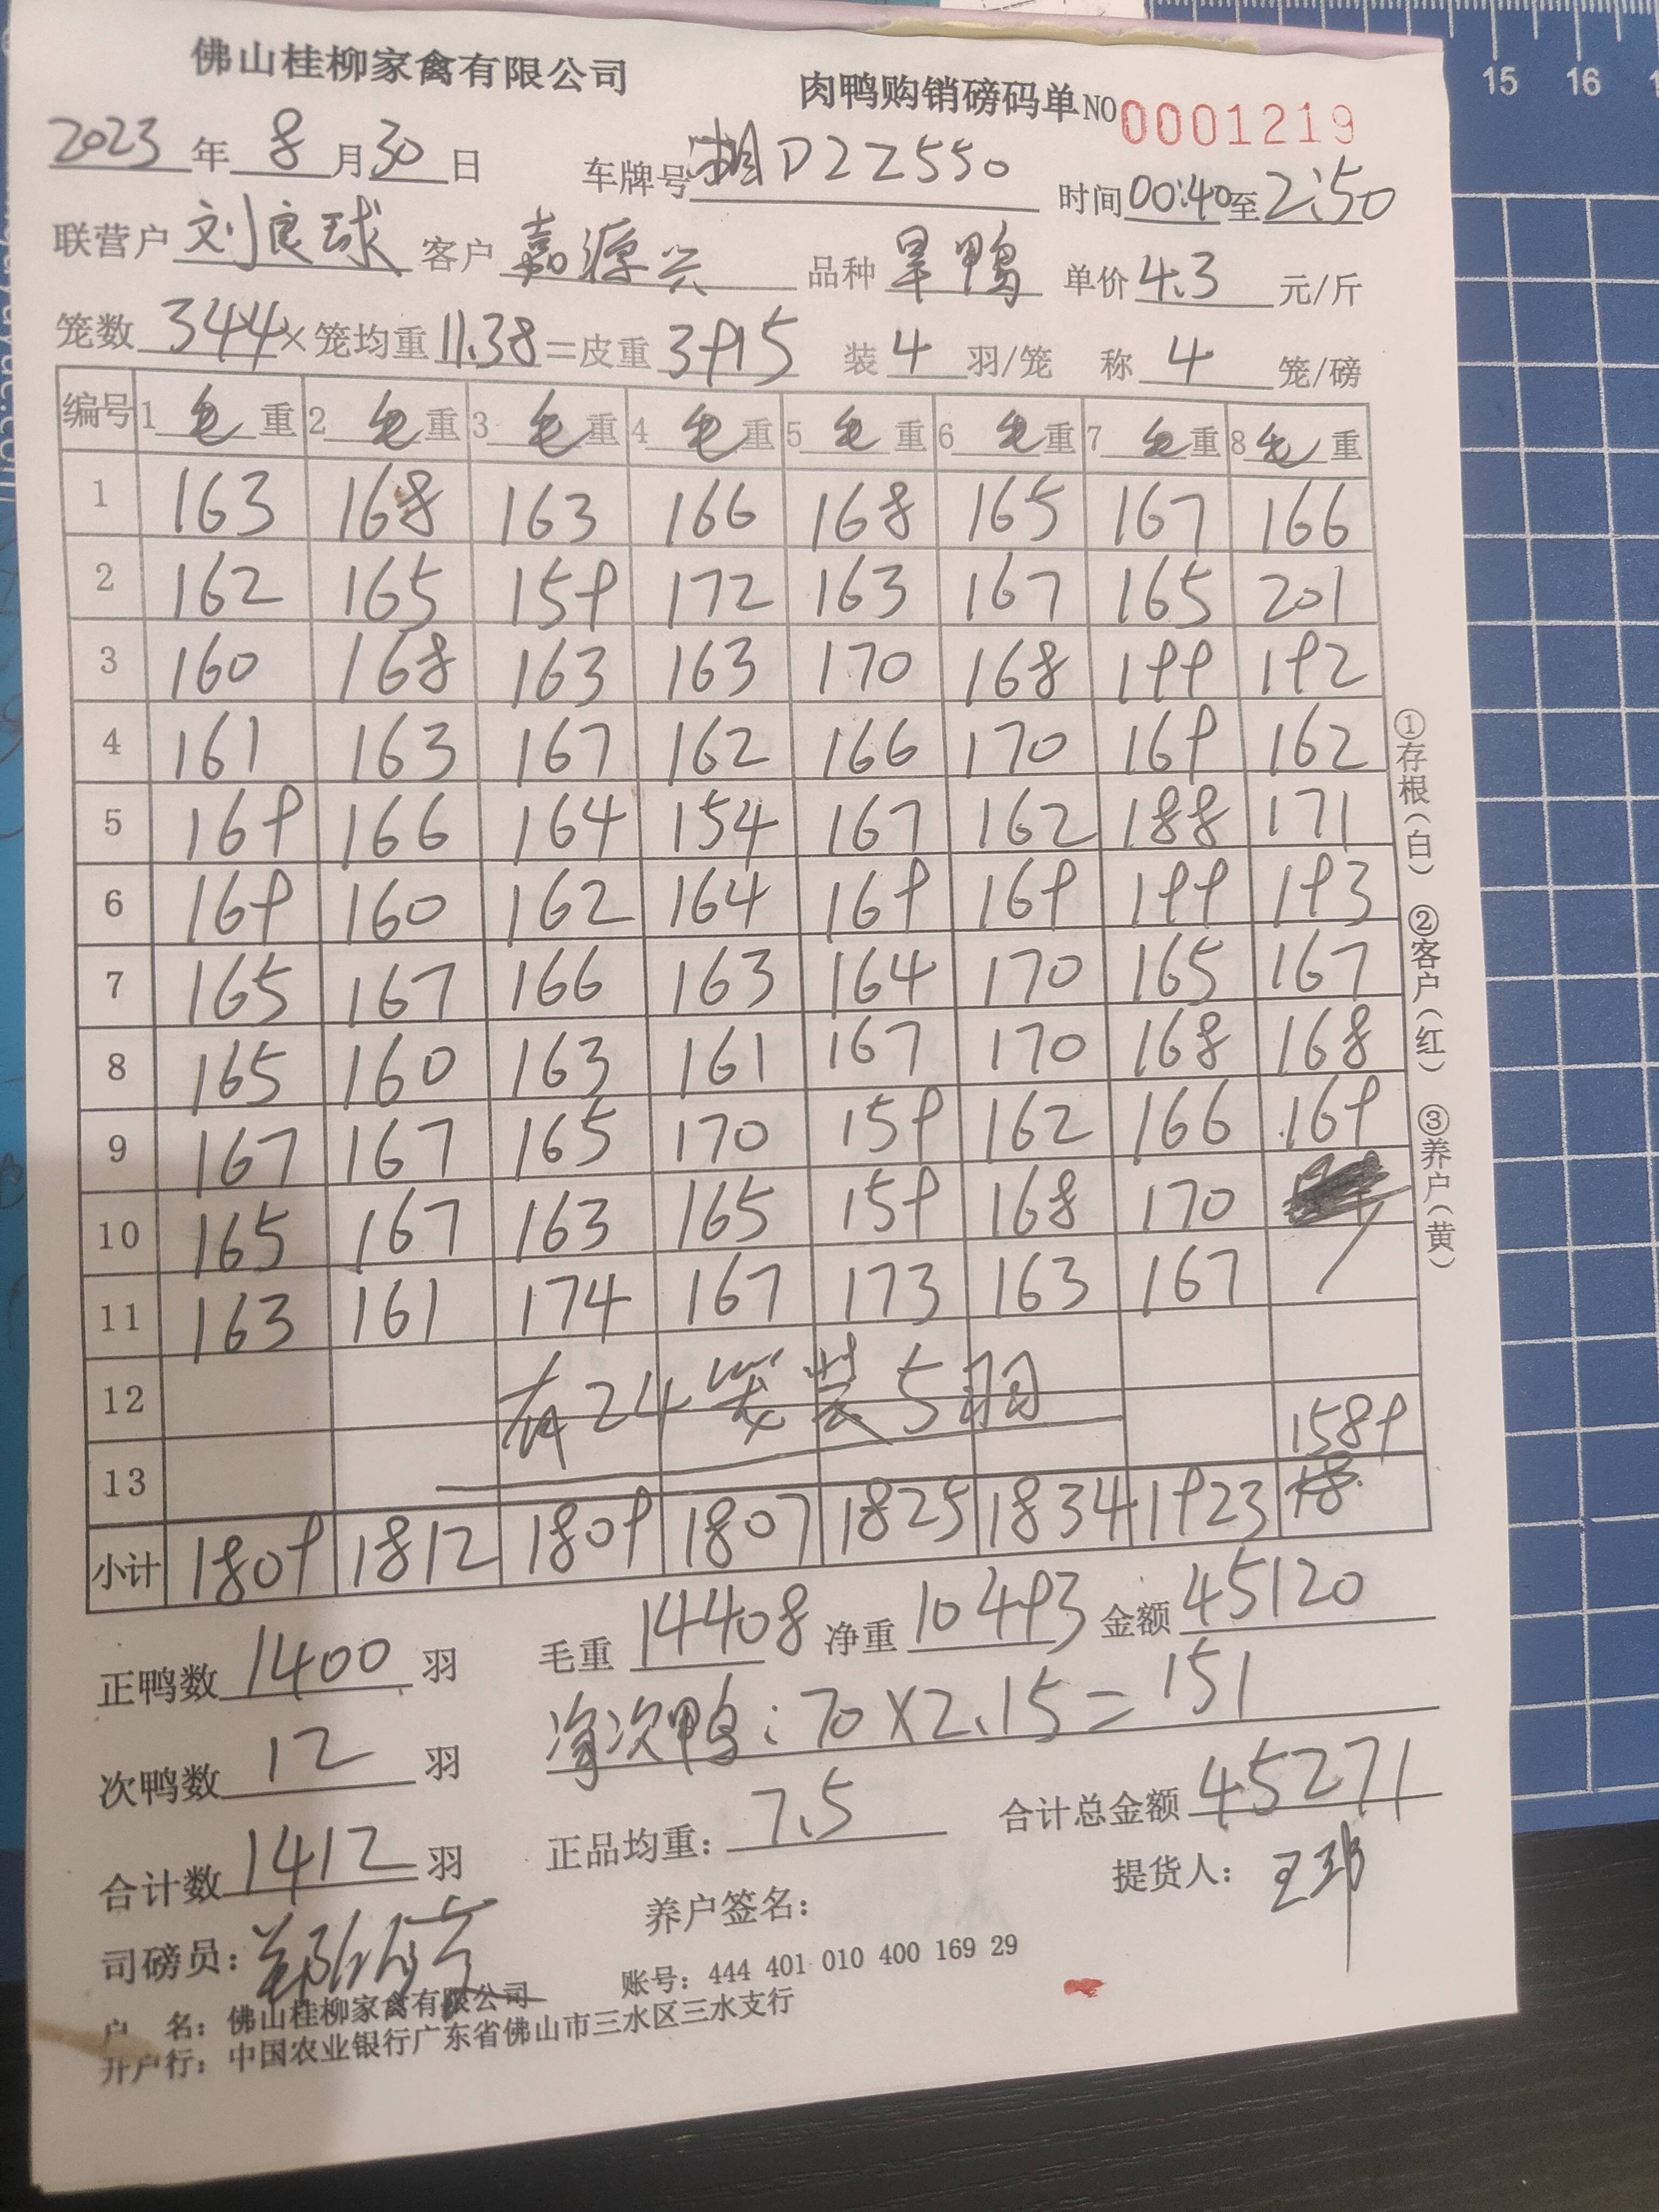 佛山桂柳家禽有限公司 肉鸭购销磅码单 NO 0001219
2023年8月30日 车牌号湘D22550 时间00:40至2:50
联营户刘良球 客户嘉源兴 品种旱鸭 单价4.3元/斤
笼数344×笼均重11.38=皮重3915 装4羽/笼 称4笼/磅
编号 1毛重 2毛重 3毛重 4毛重 5毛重 6毛重 7毛重 8毛重
1 163 168 163 166 168 165 167 166
2 162 165 159 172 163 167 165 201
3 160 168 163 163 170 168 199 192
4 161 163 167 162 166 170 169 162
5 169 166 164 154 167 162 188 171
6 169 160 162 164 169 169 199 193
7 165 167 166 163 164 170 165 167
8 165 160 163 161 167 170 168 168
9 167 167 165 170 159 162 166 169
10 165 167 163 165 159 168 170
11 163 161 174 167 173 163 167 /
12 有24笼装5羽
13 1589
小计 1809 1812 1809 1807 1825 1834 1923 18
正鸭数1400羽 毛重14408 净重10493 金额45120
次鸭数12羽 净次鸭:70×2.15=151
合计数1412羽 正品均重:7.5 合计总金额45271
司磅员: 养户签名: 提货人:
户 名:佛山桂柳家禽有限公司 账号:444 401 010 400 169 29
开户行:中国农业银行广东省佛山市三水区三水支行
①存根(白) ②客户(红) ③养户(黄)
15 16